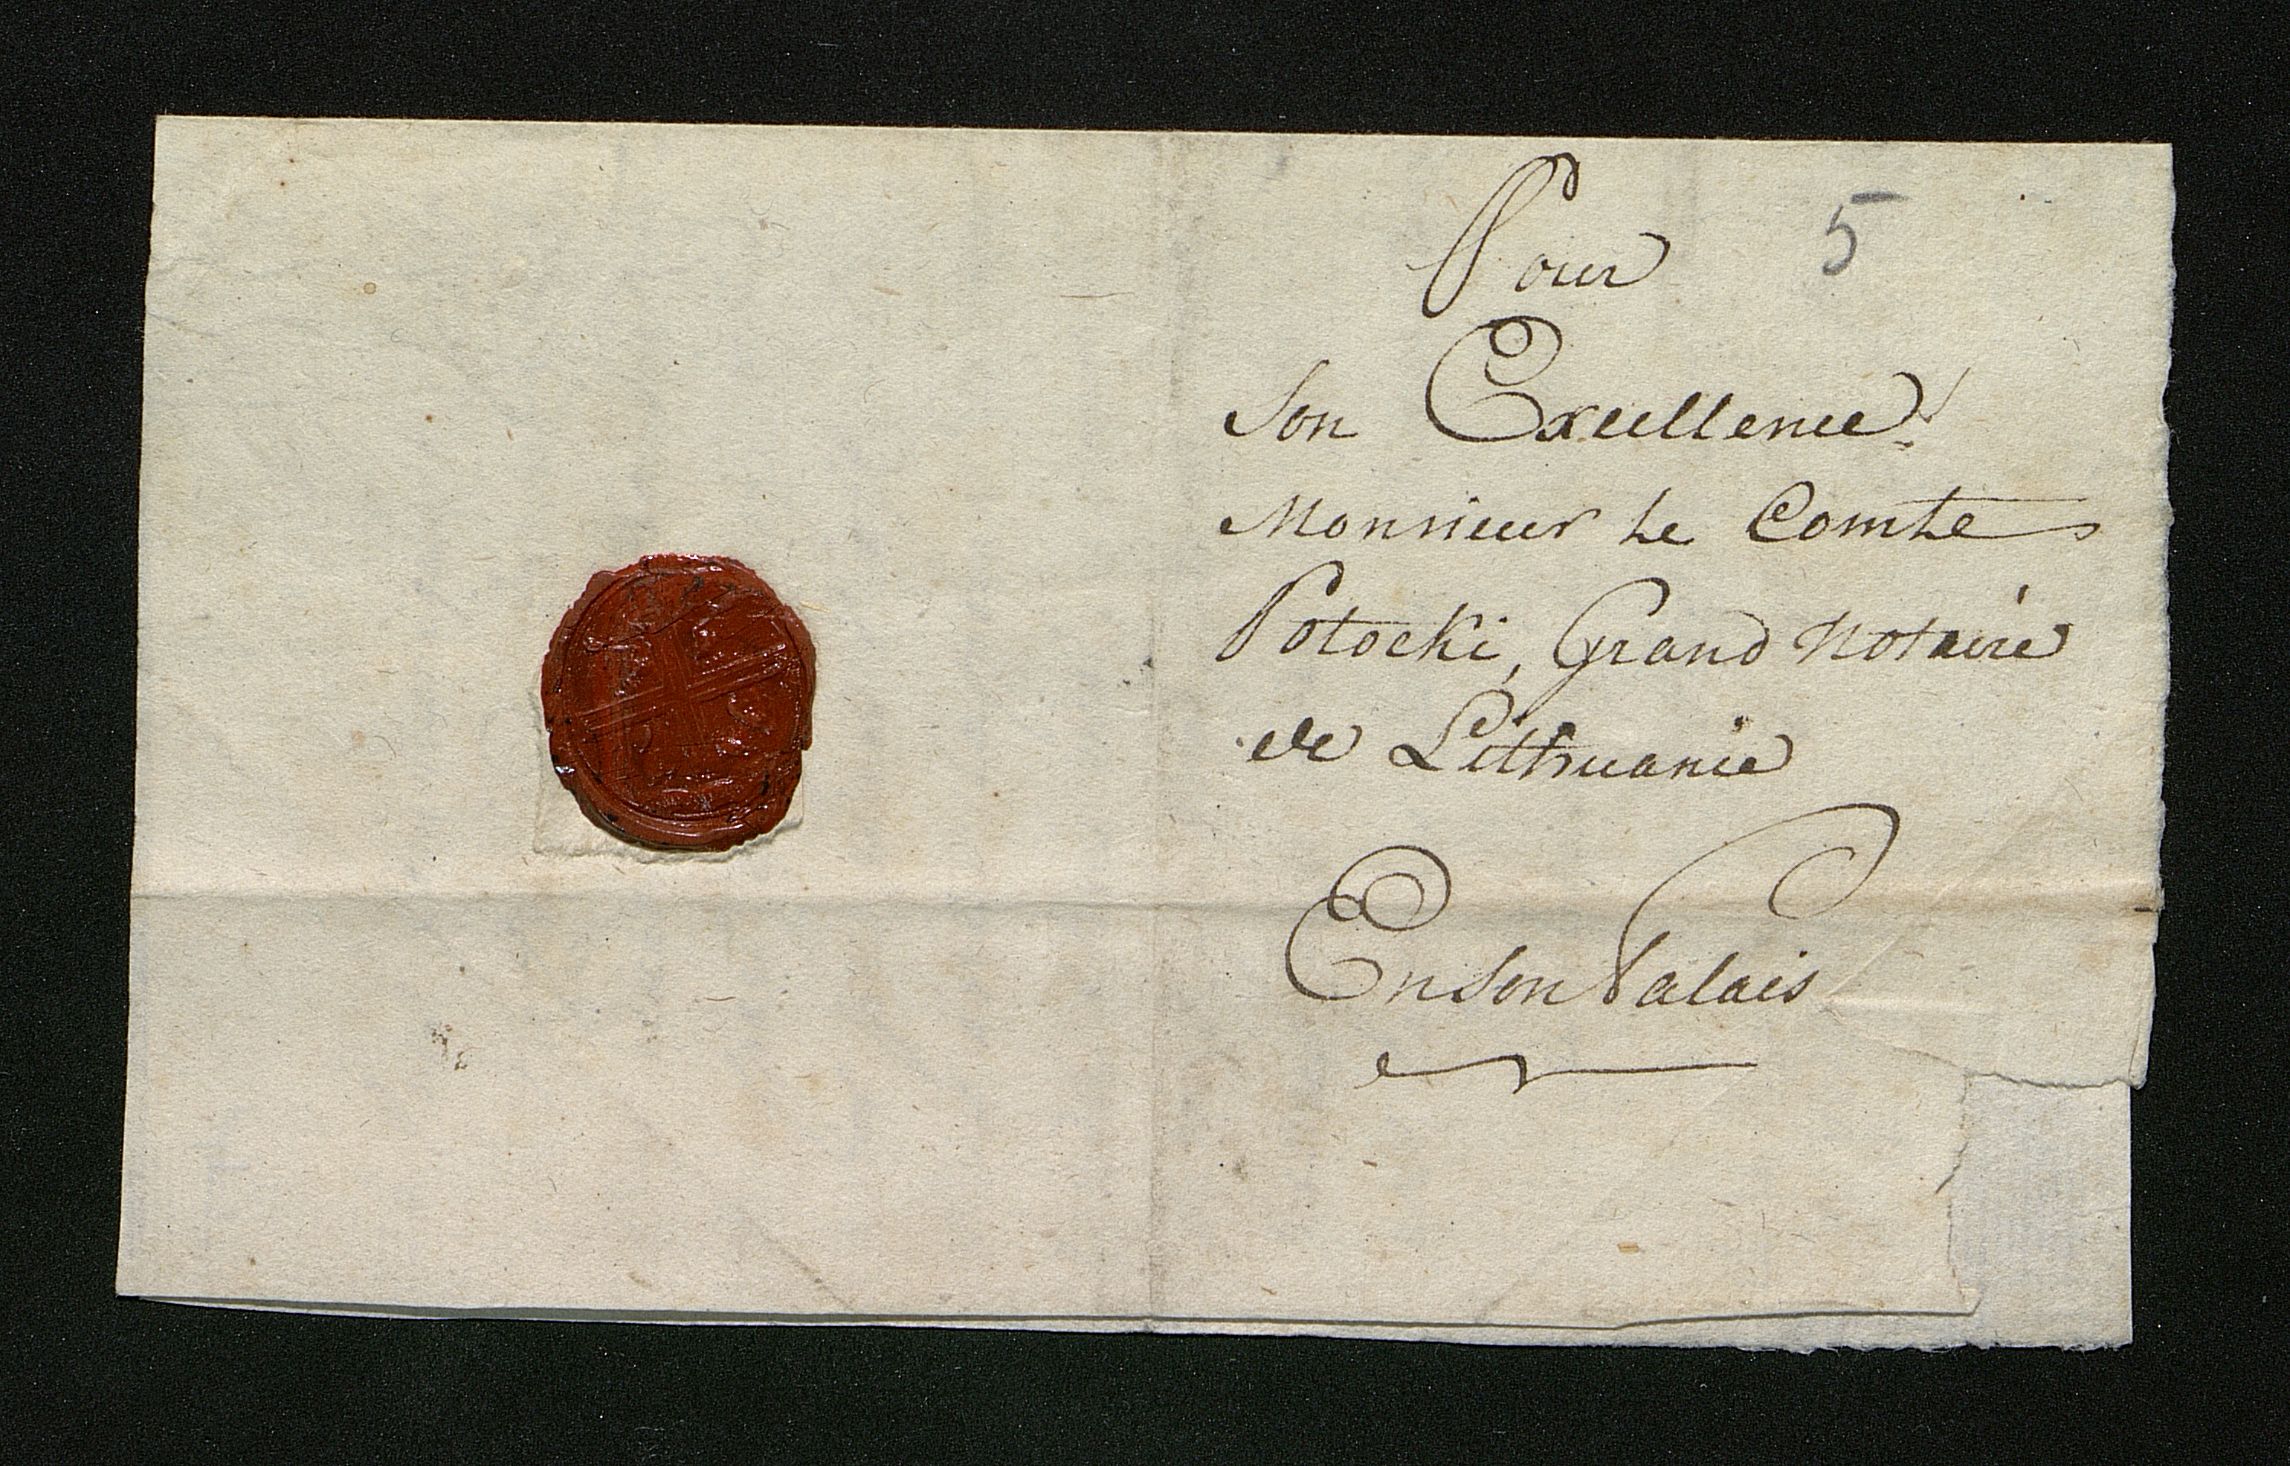 Pour 5
Son Excellence
Monsieur le Comte
Potocki, Grand Notaire
de Lithuanie
En Son Palais